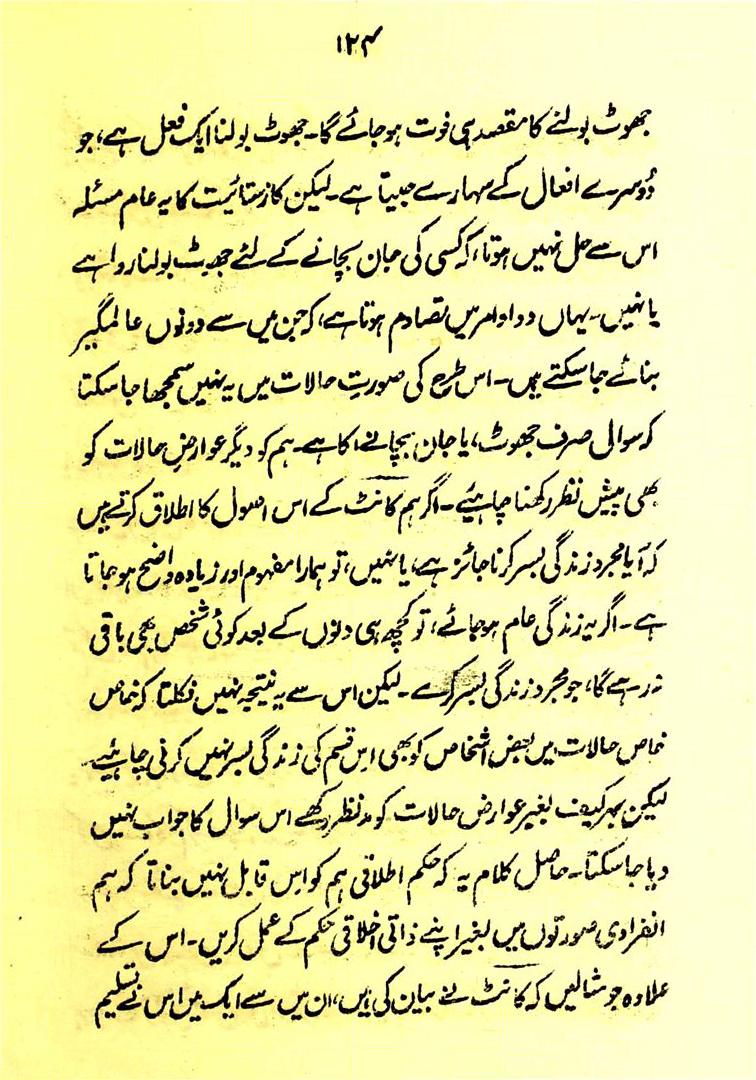 ۱۲۴
جھوٹ بولنے کا مقصد ہی فوت ہوجائے گا۔ جھوٹ بولنا ایک فعل ہے، جو
دُوسرے افعال کے سہارے جیتا ہے۔ لیکن کازستائیت کا یہ عام مسئلہ
اس سے حل نہیں ہوتا، کہ کسی کی جان بچانے کے لئے جھوٹ بولنا روا ہے
یا نہیں۔ یہاں دو اوامر میں تصادم ہوتا ہے، کہ جن میں سے دونوں عالمگیر
بنائے جاسکتے ہیں۔ اس طرح کی صورتِ حالات میں یہ نہیں سمجھا جاسکتا
کہ سوال صرف جھوٹ، یا جان بچانے، کا ہے۔ ہم کو دیگر عوارضِ حالات کو
بھی پیش نظر رکھنا چاہئیے۔ اگر ہم کانٹ کے اس اصول کا اطلاق کرتے ہیں
کہ آیا مجرد زندگی بسر کرنا جائز ہے، یا نہیں، تو ہمارا مفہوم اور زیادہ واضح ہوجاتا
ہے۔ اگر یہ زندگی عام ہوجائے، تو کچھ ہی دنوں کے بعد کوئی شخص بھی باقی
نہ رہے گا، جو مجرد زندگی بسر کرے۔ لیکن اس سے یہ نتیجہ نہیں نکلتا کہ خاص
خاص حالات میں بعض اشخاص کو بھی اِس قسم کی زندگی بسر نہیں کرنی چاہئیے۔
لیکن بہرکیف بغیر عوارض حالات کو مدنظر رکھے اس سوال کا جواب نہیں
دیا جاسکتا۔ حاصل کلام یہ کہ حکم اطلاقی ہم کو اِس قابل نہیں بناتا کہ ہم
انفرادی صورتوں میں بغیر اپنے ذاتی اخلاقی حکم کے عمل کریں۔ اس کے
علاوہ جو مثالیں کہ کانٹ نے بیان کی ہیں، ان میں سے ایک میں اس نے تسلیم